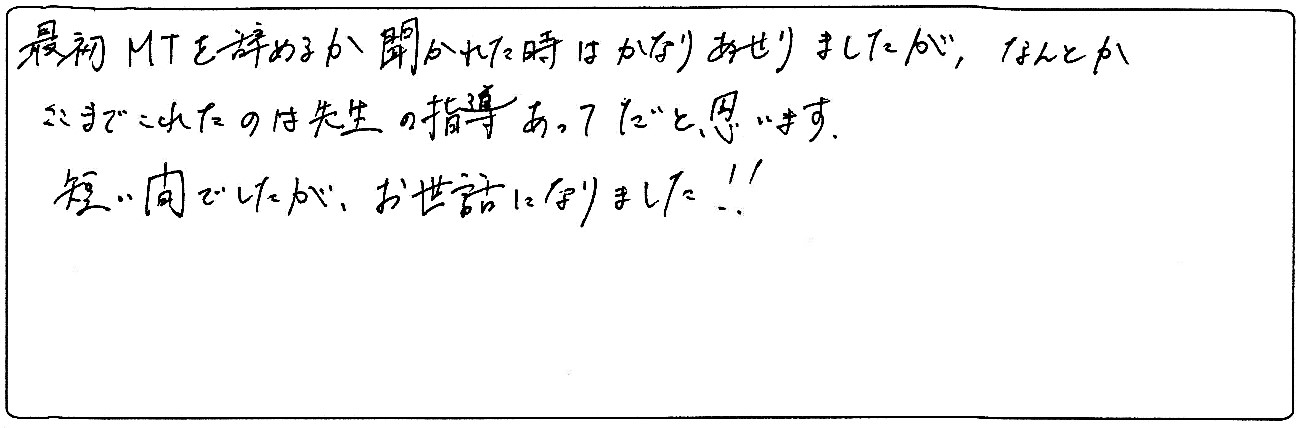 最初 MTを辞めるか聞かれた時はかなりあせりましたが、なんとか
ここまでこれたのは先生の指導あってだと思います。
短い間でしたが、お世話になりました!!